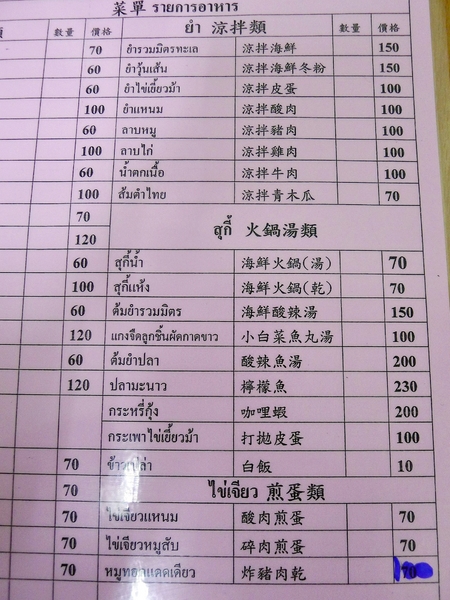 菜單 รายการอาหาร
數量 價格 ยำ 涼拌類 數量 價格
70 ยำรวมมิตรทะเล 涼拌海鮮 150
60 ยำวุ้นเส้น 涼拌海鮮冬粉 150
60 ยำไข่เยี่ยวม้า 涼拌皮蛋 100
100 ยำแหนม 涼拌酸肉 100
60 ลาบหมู 涼拌豬肉 100
100 ลาบไก่ 涼拌雞肉 100
60 น้ำตกเนื้อ 涼拌牛肉 100
100 ส้มตำไทย 涼拌青木瓜 70
70
สุกี้ 火鍋湯類
120
60 สุกี้น้ำ 海鮮火鍋(湯) 70
100 สุกี้แห้ง 海鮮火鍋(乾) 70
60 ต้มยำรวมมิตร 海鮮酸辣湯 150
120 แกงจืดลูกชิ้นผัดกาดขาว 小白菜魚丸湯 100
60 ต้มยำปลา 酸辣魚湯 200
120 ปลามะนาว 檸檬魚 230
กระหรี่กุ้ง 咖哩蝦 200
กระเพาไข่เยี้ยวม้า 打拋皮蛋 100
70 ข้าวเปล่า 白飯 10
70 ไข่เจียว 煎蛋類
70 ไข่เจียวแหนม 酸肉煎蛋 70
70 ไข่เจียวหมูสับ 碎肉煎蛋 70
70 หมูทอดแดดเดียว 炸豬肉乾